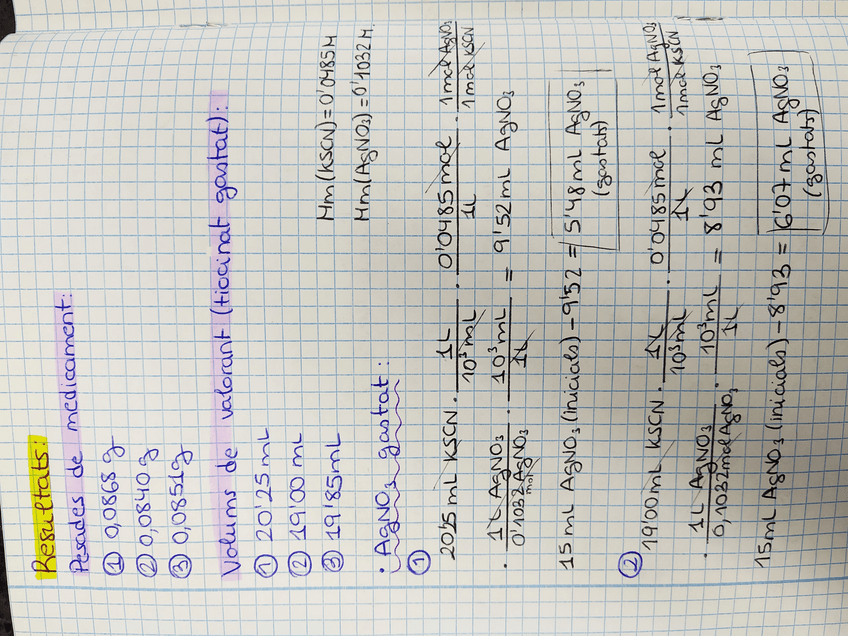 Resultats:
Pesades de medicament:
① 0,0868 g
② 0,0840 g
③ 0,0851g
Volums de valorant (tiocinat gastat):
① 20'25 mL
② 19'00 mL
③ 19'85mL
Mm(KSCN)=0'0485M
Mm(AgNO₃)=0'1032M.
· AgNO₃ gastat:
①
20'25 mL KSCN · 1L/10³mL · 0'0485mol/1L · 1mol AgNO₃/1mol KSCN
· 1L AgNO₃/0'1032 mol AgNO₃ · 10³mL/1L = 9'52 mL AgNO₃
15 mL AgNO₃ (inicials) - 9'52 = 5'48 mL AgNO₃
(gastats)
②
19'00 mL KSCN · 1L/10³mL · 0'0485mol/1L · 1mol AgNO₃/1mol KSCN
· 1L AgNO₃/0,1032mol AgNO₃ · 10³mL/1L = 8'93 mL AgNO₃
15mL AgNO₃ (inicials) - 8'93 = 6'07 mL AgNO₃
(gastats)